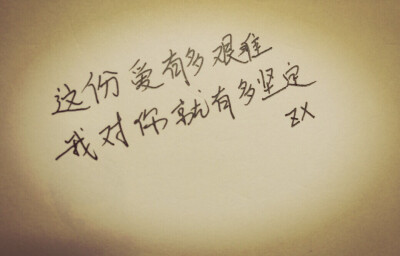 这份爱有多艰难
我对你就有多坚定
ZX